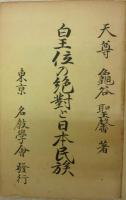 天尊 龜谷聖馨 著
皇位の絶對と日本民族
東京 名教學會 發行